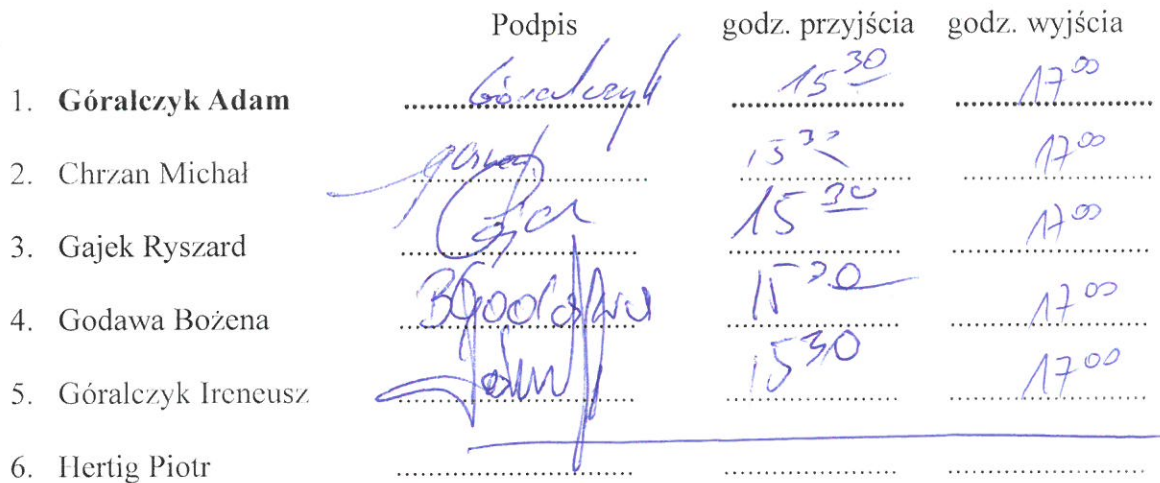 Podpis godz. przyjścia godz. wyjścia
1. Góralczyk Adam Góralczyk 15 30 17 00
2. Chrzan Michał 15 30 17 00
3. Gajek Ryszard 15 30 17 00
4. Godawa Bożena BGodawa 15 30 17 00
5. Góralczyk Ireneusz 15 30 17 00
6. Hertig Piotr